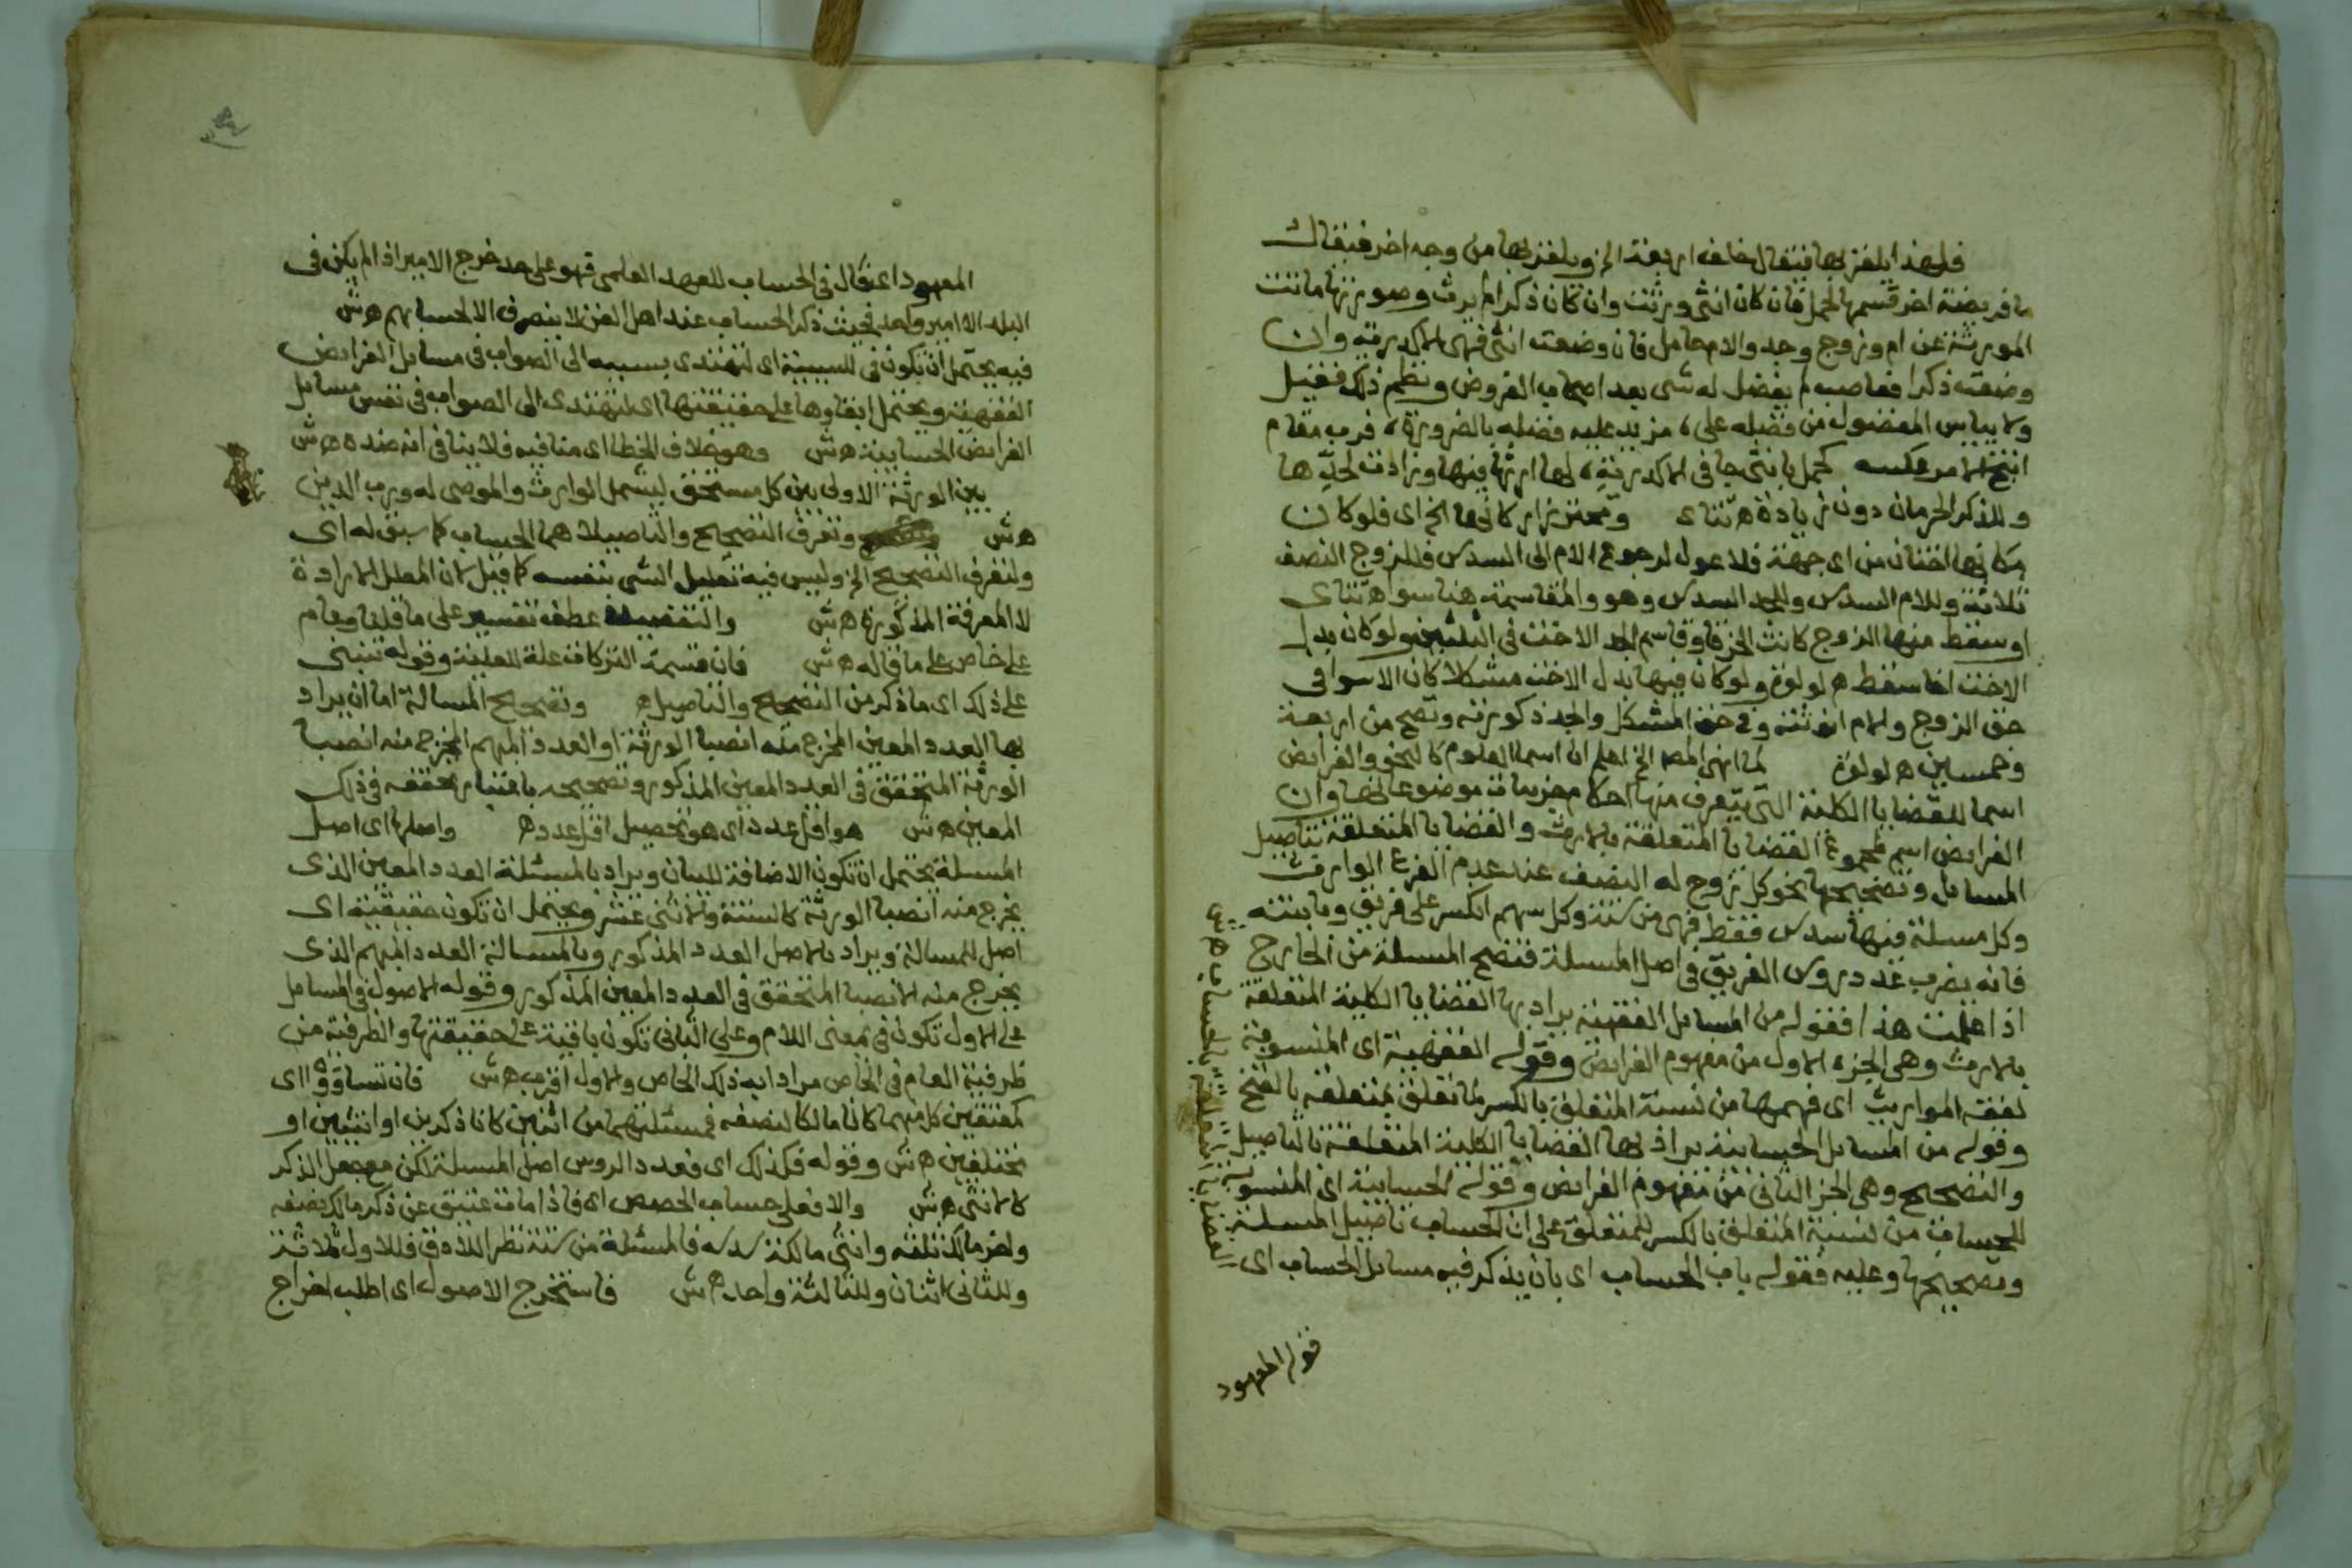 فلهذا يلغز بها فيقال خلف اربعة الخ ويلغز بها من وجه اخر فيقال
ما فريضة اخر قسمها لحمل فان كان انثى ورثت وان كان ذكرا لم يرث وصورتها ماتت
المورثة عن ام وزوج وجد والام حامل فان وضعت انثى فهى الاكدرية وان
وضعته ذكرا فعاصب لم يفضل له شى بعد اصحاب الفروض ونظم ذلك فقيل
ولا يياس المفضول من فضله على مزيد عليه فضله بالضرورة فرب مقام
انتج الامر عكسه كحمل بانثى جا فى الاكدرية لها ارثها فيها وزادت لجدها
وللذكر الحرمان دون زيادة ه شناى ومحترز اركانها الخ اى فلو كان
مكانها اختان من اى جهة فلا عول لرجوع الام الى السدس فللزوج النصف
ثلاثة وللام السدس وللجد السدس وهو والمقاسمة هنا سوا ه شناى
او سقط منها الزوج كانت الخرقا وقاسم الجد الاخت فى الثلثين ولو كان بدل
الاخت اخا سقط ه لولوة ولو كان فيها بدل الاخت مشكلا كان الاسوا فى
حق الزوج والام انوثته وفى حق المشكل والجد ذكورته وتصح من اربعة
وخمسين ه لولوة لما انهى المصـ الخ اعلم ان اسما العلوم كالنحو والفرايض
اسما للقضايا الكلية التى يتعرف منها احكام جزييات موضوعاتها وان
الفرايض اسم لمجموع القضايا المتعلقة بالارث والقضايا المتعلقة بتاصيل
المسايل وتصحيحها نحو كل زوج له النصف عند عدم الفرع الوارث
وكل مسلة فيها سدس فقط فهى من ستة وكل سهم انكسر على فريق وباينته
فانه يضرب عدد روس الفريق فى اصل المسلة فتصح المسلة من الخارج
اذا علمت هذا فقوله من المسايل الفقهية يراد بها القضايا الكلية المتعلقة
بالارث وهى الجزء الاول من مفهوم الفرايض وقوله الفقهية اى المنسوبة
لفقه المواريث اى فهمها من نسبة المتعلق بالكسر لما تعلق بمتعلقه بالفتح
وقوله من المسايل الحسابية يراد بها القضايا الكلية المتعلقة بالتاصيل
والتصحيح وهى الجز الثانى من مفهوم الفرايض وقوله الحسابية اى المنسوبة
للحساب من نسبة المتعلق بالكسر للمتعلق على ان الحساب تاصيل المسلة
وتصحيحها وعليه فقوله باب الحساب اى بان يذكر فيه مسايل الحساب اى
القضايا المتعلقة بالحساب ه ش
قوله المعهود
المعهود اى فال فى الحساب للعهد العلمى فهو على حد خرج الامير اذا لم يكن فى
البلد الا امير واحد فحيث ذكر الحساب عند اهل الفن لا ينصرف الا لحسابهم ه ش
فيه يحتمل ان تكون فى للسببية اى لتهتدى بسببه الى الصواب فى مسايل الفرايض
الفقهية ويحتمل ابقاوها على حقيقتها اى لتهتدى الى الصواب فى نفس مسايل
الفرايض الحسابية ه ش وهو خلاف الخطا اى منافيه فلا ينافى انه ضده ه ش
بين الورثة الاولى بين كل مستحق ليشمل الوارث والموصى له ورب الدين
ه ش وتعرف التصحيح والتاصيلا هما الحساب كما سبق له اى
ولتعرف التصحيح الخ وليس فيه تعليل الشى بنفسه كما قيل لان المعلل الارادة
لا المعرفة المذكورة ه ش والتفصيلا عطف تفسير على ما قلنا وعام
على خاص على ما قاله ه ش فان قسمة التركات علة للعلية وقوله تنبنى
على ذلك اى ما ذكر من التصحيح والتاصيل ه وتصحيح المسالة اما ان يراد
بها العدد المعين المخرج منه انصبا الورثة او العدد المبهم المخرج منه انصبا
الورثة المتحقق فى العدد المعين المذكور وتصحيحه باعتبار تحققه فى ذلك
المعين ه ش هو اقل عدد اى هو تحصيل اقل عدد ه واصلها اى اصل
المسلة يحتمل ان تكون الاضافة للبيان ويراد بالمسئلة العدد المعين الذى
يخرج منه انصبا الورثة كالستة والاثنى عشر ويحتمل ان تكون حقيقية اى
اصل للمسالة ويراد بالاصل العدد المذكور وبالمسالة العدد المبهم الذى
يخرج منه الانصبا المتحقق فى العدد المعين المذكور وقوله الاصول فى المسايل
على الاول تكون فى بمعنى اللام وعلى الثانى تكون باقية على حقيقتها والظرفية من
ظرفية العام فى الخاص مرادا به ذلك الخاص والاول اقرب ه ش فان تساووا اى
كمعتقين كل منهما كانا مالكا لنصفه فمسئلتهما من اثنين كانا ذكرين او انثيين او
مختلفين ه ش وقوله فكذلك اى فعدد الروس اصل المسلة لكن مع جعل الذكر
كالانثى ه ش والا فعلى حساب الحصص اى فاذا مات عتيق عن ذكر مالك نصفه
واخر مالك ثلثه وانثى مالكة سدسه فالمسئلة من ستة نظرا للادق فللاول ثلاثة
وللثانى اثنان وللثالثة واحد ه ش فاستخرج الاصول اى اطلب اخراج